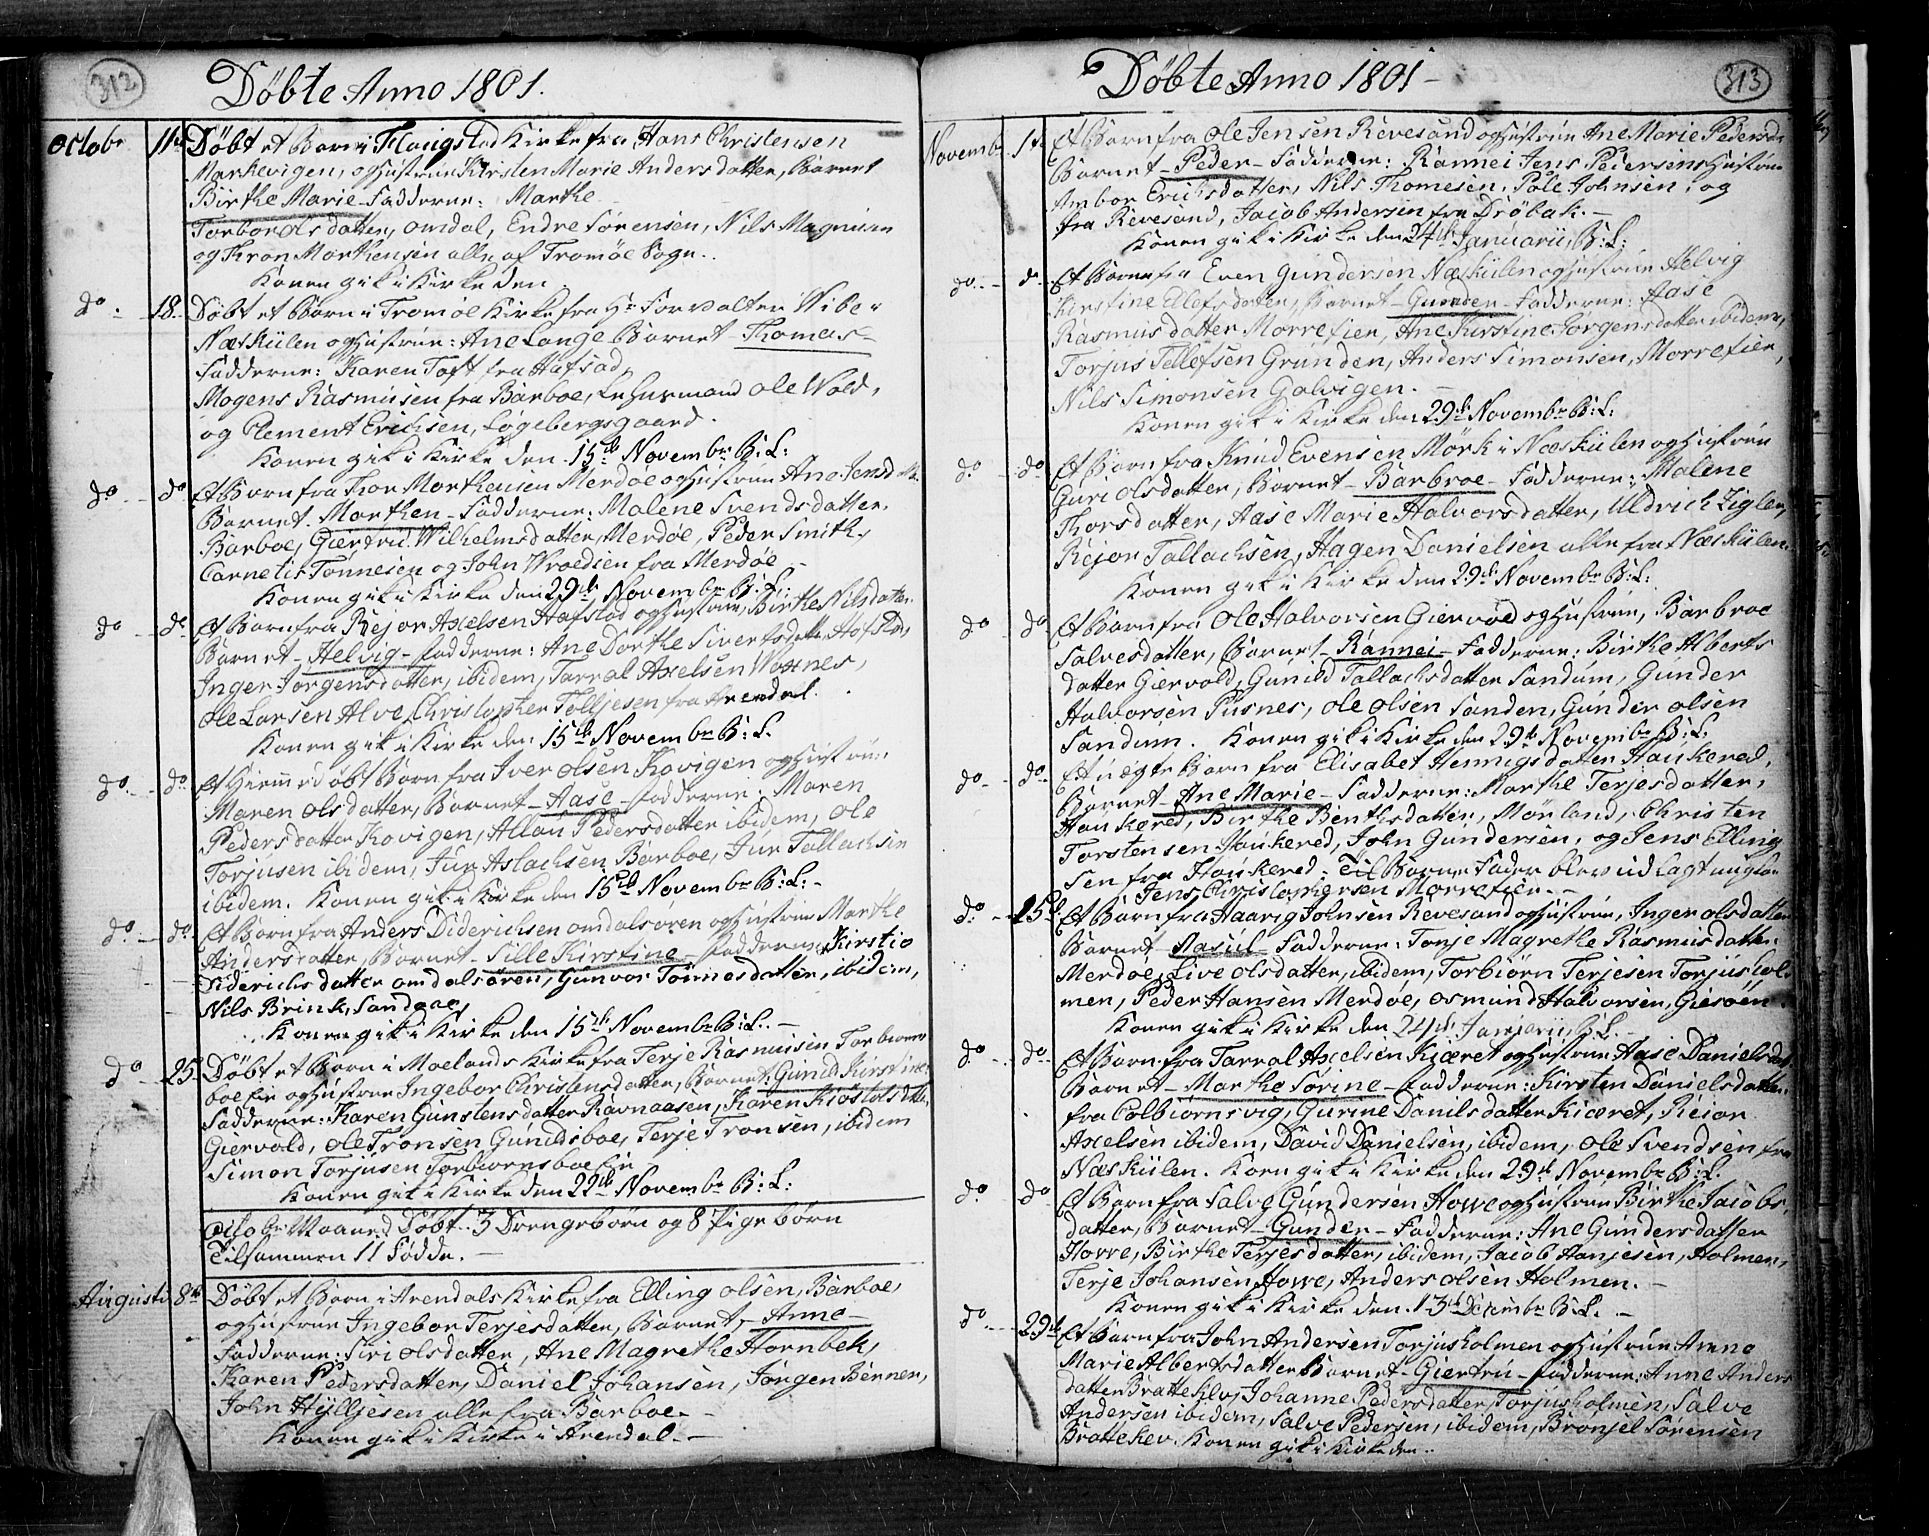 312
Döbte Anno 1801.
Octobr 11te Döbt et Barn i Flougstad Kirke fra Hans Christensen
Markevigen, og Hustrue Kirsten Marie Anders datter, Barnet
Birthe Marie - Fadderne: Marthe
Torbor Ols datter, Omdal, Endre Sörensen, Nils Magnisen
og Thron Morthensen alle af Tromöe Sogn.
Konen gik i Kirke den
do. 18. Döbt et Barn i Tromöe Kirke fra Hr Forvalter Wibe i
Næskülen og Hustrue: Ane Lange Barnet - Thomas -
Fadderne: Karen Toft fra Hafstad,
Mogens Rasmusen fra Barboe, Ole Wold,
og Clement Erichsen, Løgebergsgaard.
Konen gik i Kirke den 15de Novembr B: L:
do - do Et Barn fra Thor Morthensen Merdöe og Hustrue Ane Jensdatter
Barnet - Morthen - Fadderne: Malene Svends datter,
Barboe, Giertrud Wilhelmsdatter, Merdöe, Peder Smith,
Cornelis Tönnesen og John Wroldsen fra Merdöe -
Konen gik i Kirke den 29de Novembr B: L:
do - do Et Barn fra Rejor Axelsen Hafstad og Hustrue, Birthe Nilsdatter
Barnet - Helvig - Fadderne: Ane Dorthe Siverts datter, Hafstad,
Inger Jörgensdatter, ibidem, Tarral Axelsen Woxnes,
Ole Larsen Alve, Christopher Tolljesen fra Arendal.
Konen gik i Kirke den 15de Novembr B: L.
do. - do. Et Hiemmedöbt Barn fra Iver Olsen Kovigen og Hustrue
Maren Olsdatter, Barnet - Aase - Fadderne: Maren
Peders datter Kovigen, Allau Pedersdatter ibidem, Ole
Torjusen ibidem, Jur Aslachsen Barboe, Jur Tallachsen
ibidem. Konen gik i Kirke den 15de Novembr B: L: -
do. - do. Et Barn fra Anders Diderichsen Omdalsören og Hustrue Marthe
Andersdatter, Barnet - Sille Kirstine - Fadderne: Kirstie
Siderichs datter Omdalsören, Gunvor Tönnesdatter, ibidem,
Nils Brink, Sandene,
Konen gik i Kirke den 15de Novembr B: L. -
do - 25. Döbt et Barn i Moelands Kirke fra Terje Rasmusen Torbiorns
boe fie og Hustrue Ingebor Christensdatter, Barnet: Gunild Kirstine
Fadderne: Karen Gunstensdatter Ravnaasen, Karen Kiöstolsdatter
Giervold, Ole Tronsen Gunildsboe, Terje Tronsen, ibidem
Simon Torjusen Torbiornsboe fie
Konen gik i Kirke den 22de Novembr B: L:
Octobr Maaned Döbt 3 Drengebörn og 8 Pigebörn
Tilsammen 11 Födde. -
Augusti 8te Döbt et Barn i Arendals Kirke fra Elling Olsen, Barboe,
og Hustrue Ingebor Terjesdatter, Barnet, - Anne -
Fadderne: Siri Olsdatter, Ane Magrethe Hornbek,
Karen Pedersdatter, Daniel Johansen, Jörgen Benner,
John Hylljesen alle fra Barboe. -
Konen gik i Kirke i Arendal. -
313
Döbte Anno 1801 -
Novembr 1te Et Barn fra Ole Jensen Revesand og Hustrue Ane Marie Pedersdr
Barnet - Peder - Fadderne: Rannei Jens Pedersens Hustrue
Ambor Erichsdatter, Nils Thomesen, Pole Johnsen, og
fra Revesand, Jacob Andersen fra Dröbak. -
Konen gik i Kirke den 24de Januarii, B: L:
do. - do Et Barn fra Even Gundersen Næskülen og Hustrue Helvig
Kirstine Ellefsdatter, Barnet - Gunder - Fadderne: Aase
Rasmusdatter Morrefien, Ane Kirstine Jörgensdatter ibidem,
Torjus Tellefsen Grunden, Anders Simonsen, Morrefien,
Nils Simonsen Galvigen. -
Konen gik i Kirke den 29de Novembr B: L:
do - do Et Barn fra Knud Evensen Mörk i Næskülen og Hustrue
Guri Olsdatter, Barnet - Barbroe - Fadderne: Malene
Thorsdatter, Aase Marie Halvorsdatter, Uldrich Zigler,
Rejor Tallachsen, Hagen Danielsen alle fra Næskülen.
Konen gik i Kirke den 29de Novembr B: L:
do - do Et Barn fra Ole Halvorsen Giervold og Hustrue, Barbroe
Salvesdatter, Barnet - Rannei - Fadderne: Birthe Alberts
datter Giervold, Gunild Tallachsdatter Sandum, Gunder
Halvorsen Pusnes, Ole Olsen Sanden, Gunder Olsen
Sandum. Konen gik i Kirke den 29de Novembr B: L:
do - do Et uægte Barn fra Elisabet Hennigsdatter Haukered,
Barnet - Ane Marie - Fadderne: Marthe Terjesdatter,
Haukered, Birthe Benthsdatter, Mörland, Christen
Torstensen Haukered, John Gundersen, og Jens Elling
sen fra Haukered: Til Barne Fader blev udlagt
Jens Christophersen Morrefien. -
do. - 15de Et Barn fra Haavig Johnsen Revesand og Hustrue, Inger Olsdatter
Barnet - Aasul - Fadderne: Tonje Magrethe Rasmusdatter
Merdöe, Live Olsdatter, ibidem, Torbiörn Terjesen Torjushol
men, Peder Hansen Merdöe, Osmund Halvorsen, Giesöen.
Konen gik i Kirke den 24de Januarii, B: L. -
do - do. Et Barn fra Tarral Axelsen Kiæret og Hustrue Aase Danielsdat
Barnet - Marthe Sörine - Fadderne: Kirsten Danielsdatter
fra Colbiörnsvig, Gurine Danilsdatter Kiæret, Reior
Axelsen ibidem, David Danielsen, ibidem, Ole Svendsen fra
Næskülen. Konen gik i Kirke den 29de Novembr B: L.
do - do Et Barn fra Salve Gundersen Howe og Hustrue Birthe Jacobs
datter, Barnet - Gunder - Fadderne: Ane Gundersdatter
Howe, Birthe Terjesdatter, ibidem, Jacob Hansesen, Holmen,
Terje Johansen Howe, Anders Olsen Holmen. -
Konen gik i Kirke den 13de Decembr B: L. -
do - 29de Et Barn fra John Andersen Torjusholmen og Hustrue Anna
Marie Albertsdatter Barnet - Giertru - Fadderne: Anne Anders
datter Brattekley, Johanne Pedersdatter, Torjusholmen, Salve
Andersen ibidem, Salve Pedersen, ibidem, Brönjel Sörensen
Brattekley. Konen gik i Kirke den -